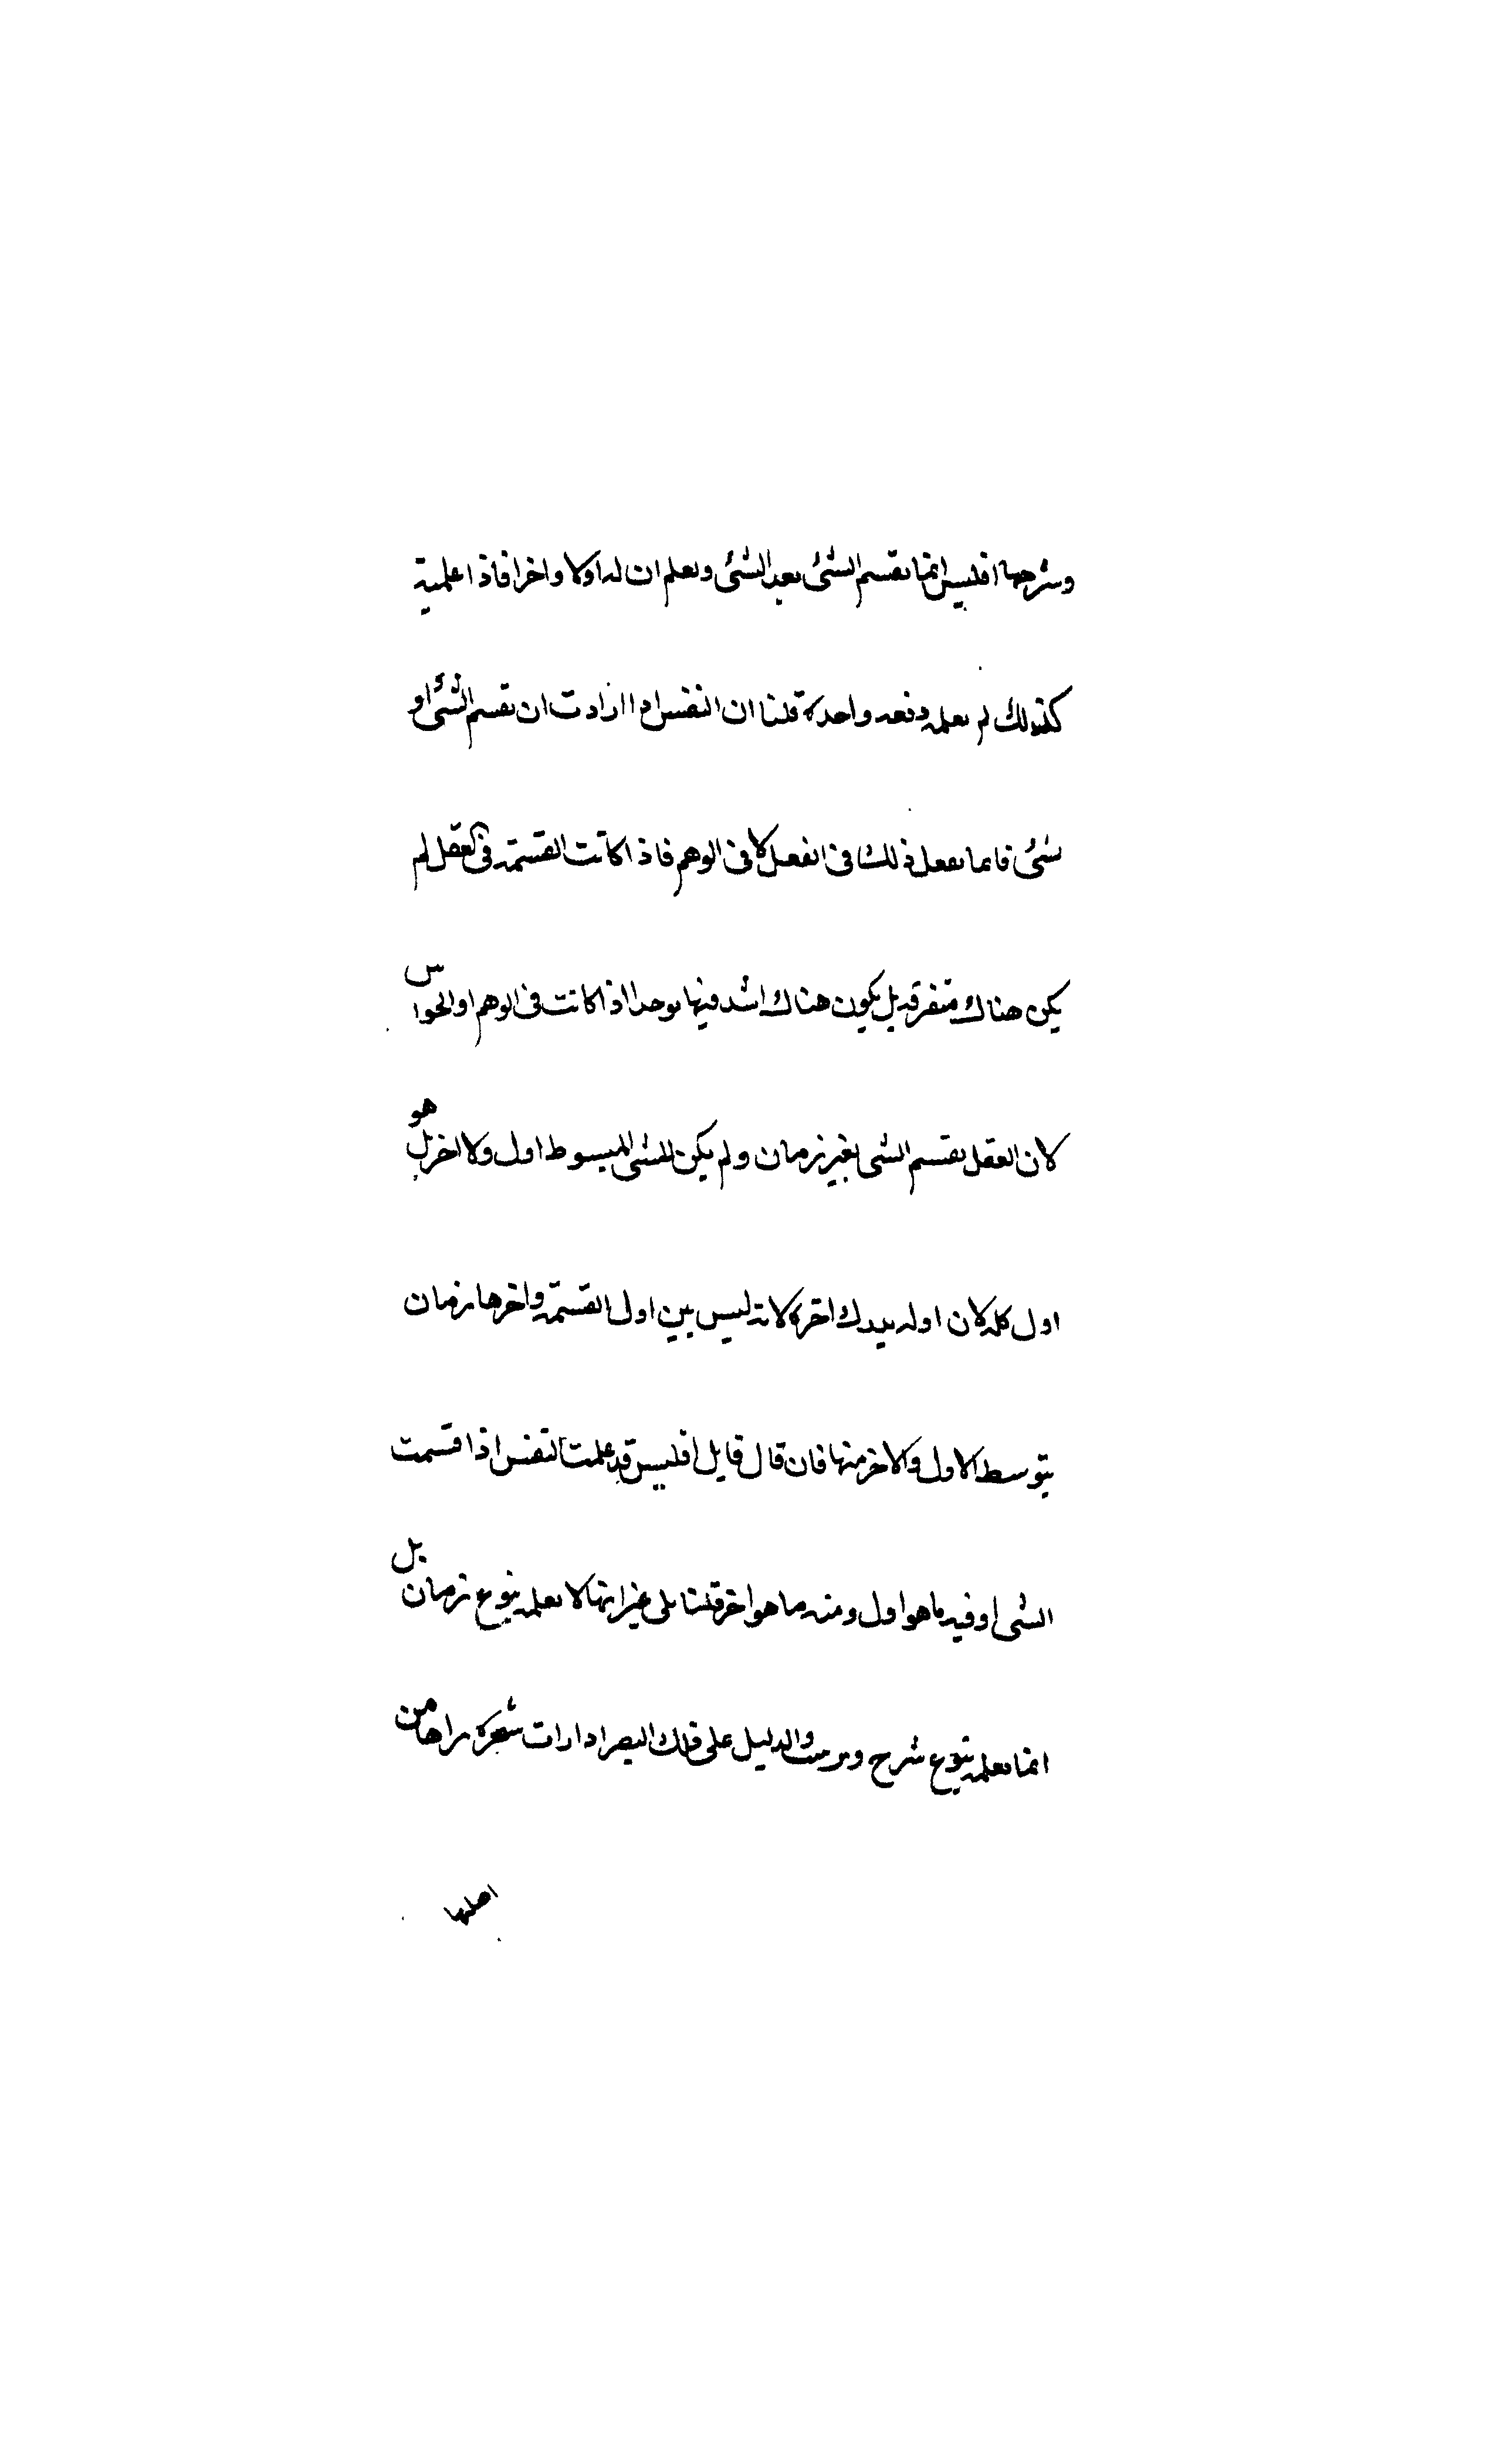 وشرحها افليس انما تقسم الشئ بعد الشئ وتعلم ان له اولا واخرا فاذا علمته
كذلك لم تعلمه دفعه واحدة قلنا ان النفس اذا ارادت ان تقسم الشئ او
شئ فانما تفعل ذلك فى الفعل لا فى الوهم فاذا كانت القسمة فى العقل لم
يكن هناك متفرقه بل يكون هناك اشد منها توحدا اذا كانت فى الوهم او الحواس
لان العقل يقسم الشى بغير زمان ولم يكن للشى المبسوط اول ولا اخر بل هو
اول كله لان اوله يدرك اخره لانه ليس بين اول القسمة واخرها زمان
يتوسط الاول والاخر منها فان قال قايل افليس قد علمت النفس اذا قسمت
الشى او فيه ما هو اول ومنه ما هو اخر قلنا بلى غير انها لا تعلمه بنوع زمان بل
انما تعلمه بنوع شرح وترتيب والدليل على ذلك البصر اذا رات شجرة يراها من
اصلها